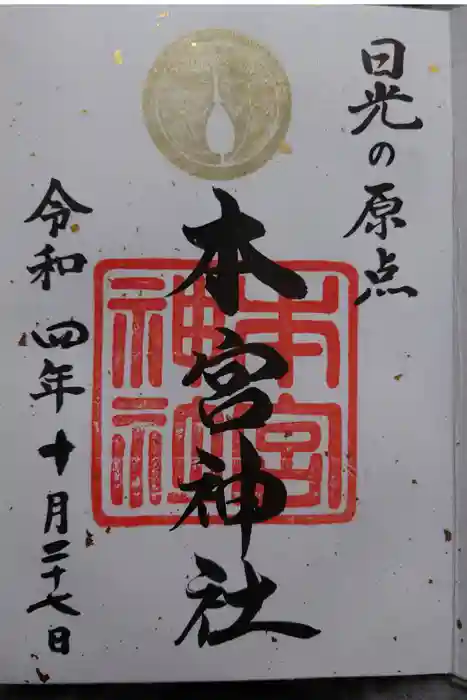 日光の原点
本宮神社
本宮神社
令和四年十月二十七日